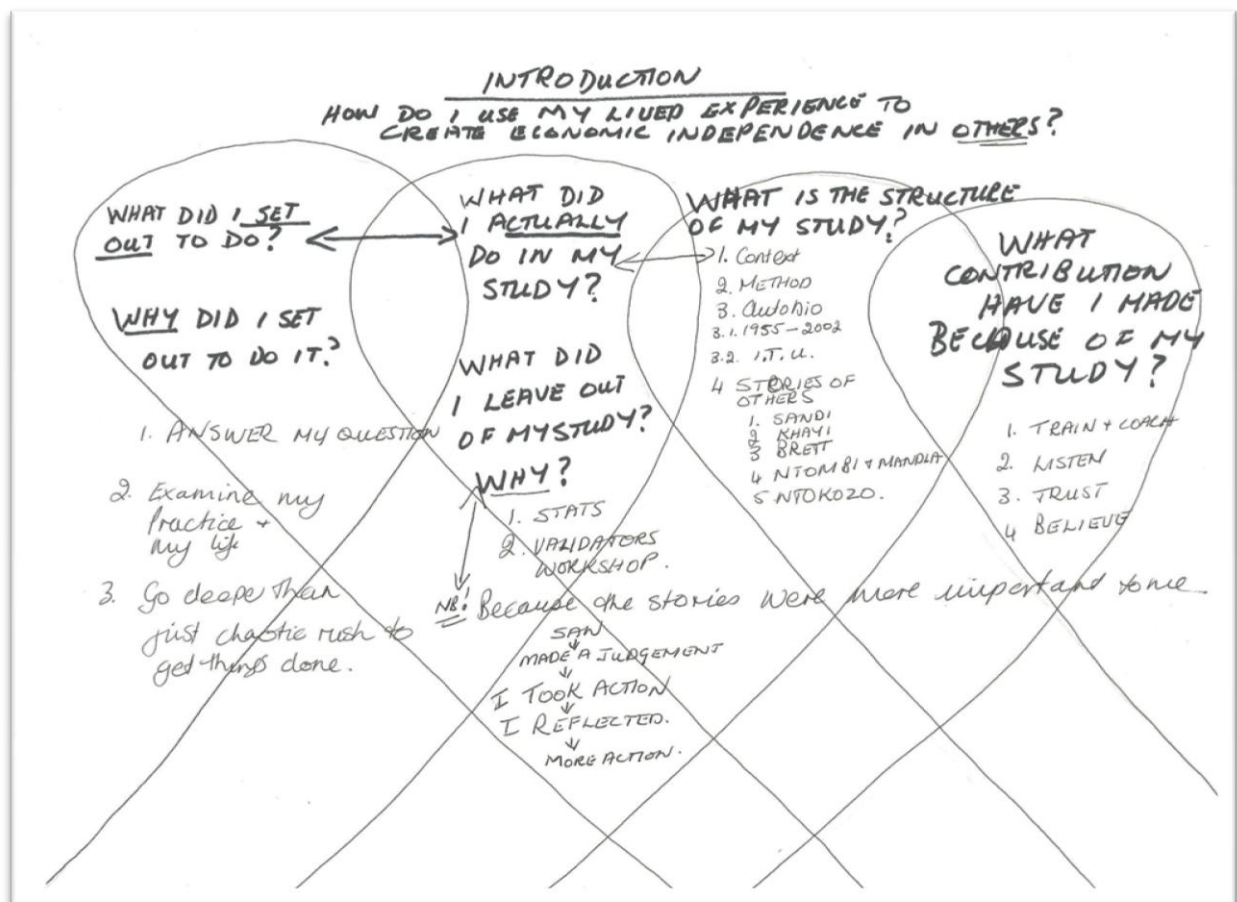 INTRODUCTION
HOW DO I USE MY LIVED EXPERIENCE TO
CREATE ECONOMIC INDEPENDENCE IN OTHERS?
WHAT DID I SET
OUT TO DO?
WHY DID I SET
OUT TO DO IT?
1. ANSWER MY QUESTION
2. Examine my
Practice +
my life
3. Go deeper than
just chaotic rush to
get things done.
WHAT DID
I ACTUALLY
DO IN MY
STUDY?
WHAT DID
I LEAVE OUT
OF MY STUDY?
WHY?
1. STATS
2. VALIDATORS
WORKSHOP.
NB! Because the stories were more important to me
SAW
MADE A JUDGEMENT
I TOOK ACTION
I REFLECTED.
MORE ACTION.
WHAT IS THE STRUCTURE
OF MY STUDY?
1. Context
2. METHOD
3. AutoBio
3.1. 1955-2002
3.2. I.T.U.
4 STORIES OF
OTHERS
1. SANDI
2 KHAYI
3 BRETT
4 NTOMBI + MANDLA
5 NTOKOZO.
WHAT
CONTRIBUTION
HAVE I MADE
BECAUSE OF MY
STUDY?
1. TRAIN + COACH
2. LISTEN
3. TRUST
4 BELIEVE